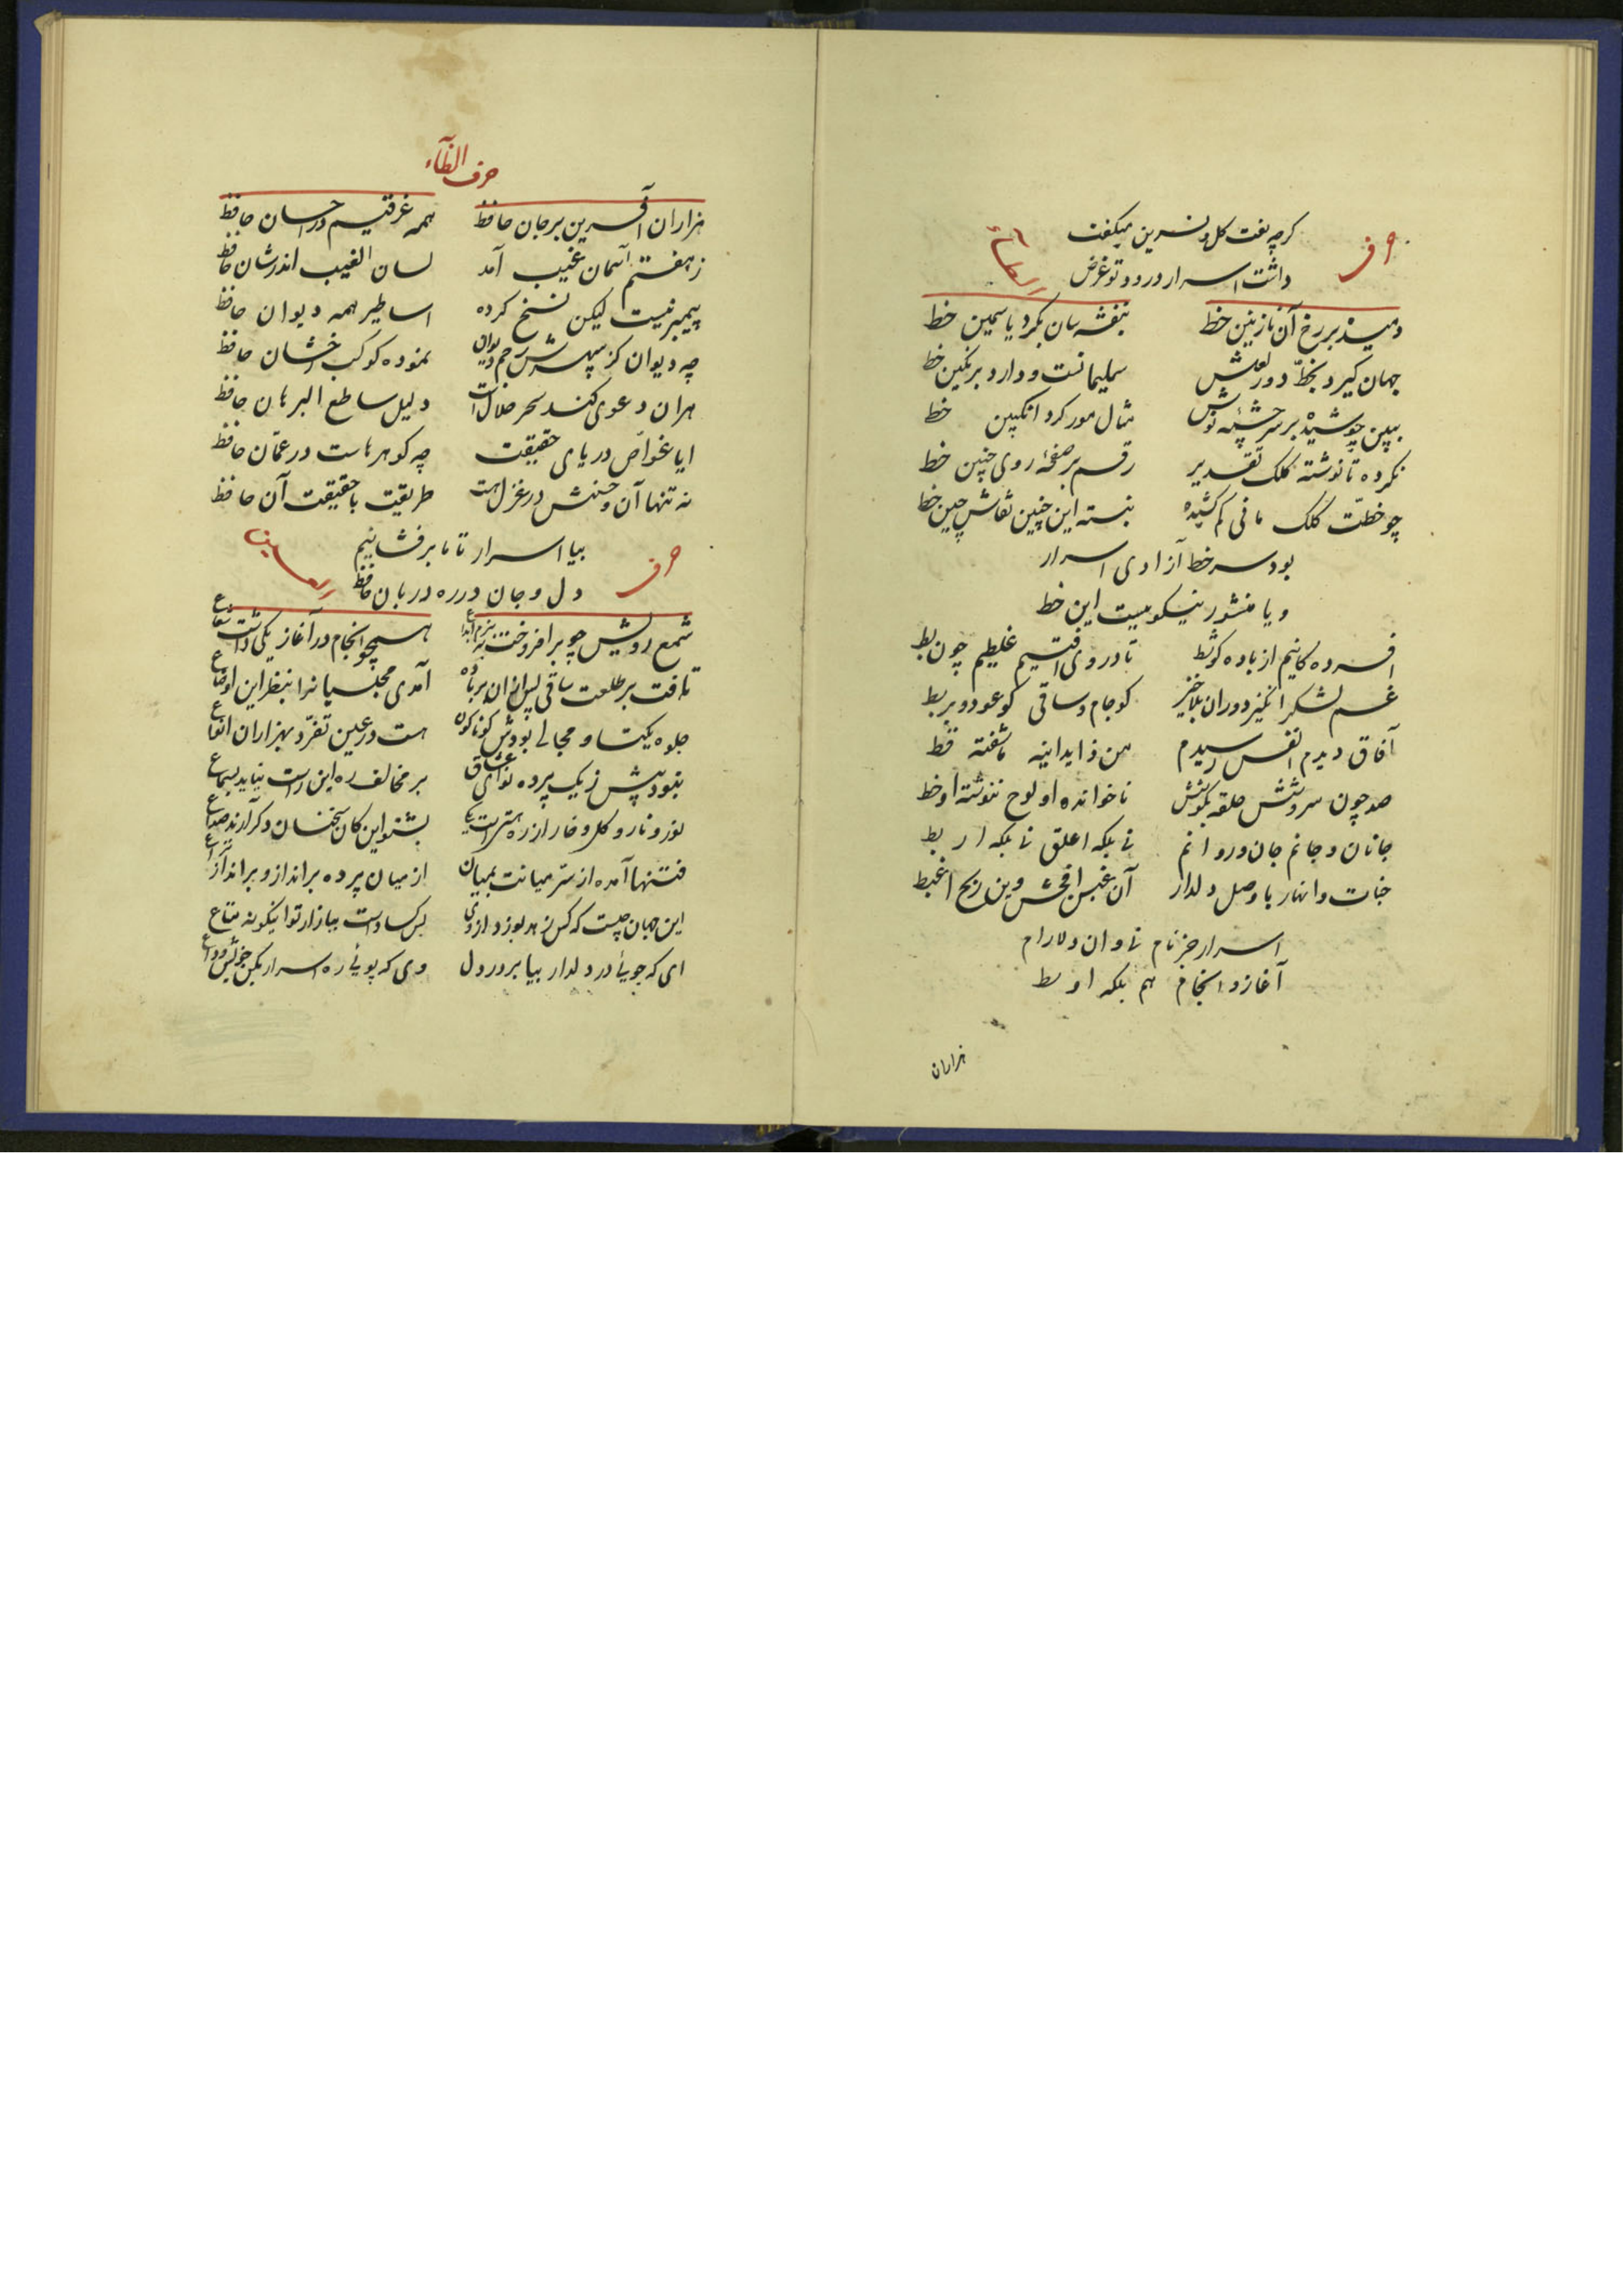 گرچه نعت گل و نسرین میگفت
حرف الطاء
داشت اسرار درود تو غرض
دمیده بر رخ آن نازنین خط بنفشه سان بگرد یاسمین خط
جهان گیرد بخط دور لعلش سلیمانست و دارد بر نگین خط
ببین جوشیده بر سرچشمه نوش مثال مور گرد انگبین خط
نکرده تا نوشته کلک تقدیر رقم بر صفحه روی چنین خط
چو خطت کلک مانی کم کشیده نبسته این چنین نقاش چین خط
بود سرخط آزادی اسرار
و یا منشور نیکوییست این خط
افسرده گانیم از باده کو شط تا در وی افتیم غلطیم چون بط
غم لشکر انگیز دوران بلاخیز کو جام و ساقی کو عود و بربط
آفاق دیدم انفس رسیدم من ذا یدانیه ما شفته قط
صد چون سروشش حلقه بگوشش ناخوانده او لوح ننوشته او خط
جانان و جانم جان و روانم نی بلکه اعلق نی بلکه اربط
جنات و انهار با وصل دلدار آن غبن افحش وین ربح اغبط
اسرار جز نام نی وان دلارام
آغاز و انجام هم بلکه اوسط
هزاران
حرف الظاء
هزاران آفرین بر جان حافظ همه غرقیم در احسان حافظ
ز هفتم آسمان غیب آمد لسان الغیب اندر شان حافظ
پیمبر نیست لیکن نسخ کرده اساطیر همه دیوان حافظ
چه دیوان کز سپهرش رجم دیوان نموده کوکب رخشان حافظ
هران دعوی کند سحر حلال است دلیل ساطع البرهان حافظ
ایا غواص دریای حقیقت چه گوهرهاست در عمان حافظ
نه تنها آن و حسنش در غزل هست طریقت با حقیقت آن حافظ
بیا اسرار تا ما برفشانیم
حرف العین
دل و جان در ره دربان حافظ
شمع رویش چو برافروخت به بزم ابداع همچو انجام در آغاز یکی داشت شعاع
تافت بر طلعت ساقی پس از آن بر باده آمدی مجلسیانرا بنظر این اوضاع
جلوه یکتا و مجالی بودش گوناگون هست در عین تفرد بهزاران انواع
نبود بیش ز یک پرده نوای عشاق بر مخالف ره این راست نیاید بسماع
نور و نار و گل و خار از ره هستی است یکی بشنو این کان سخنان دگر آرند صداع
فتنها آمده از ستر میانت بمیان از میان پرده برانداز و برانداز نزاع
این جهان چیست که کس زهد بورزد از وی بس کساد است ببازار تو اینگونه متاع
ای که جویی در دلدار بیا بر در دل وی که پویی ره اسرار بکن خویش وداع